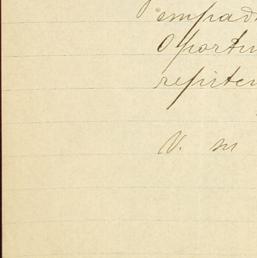 empad
Oportu
repiten
V. m